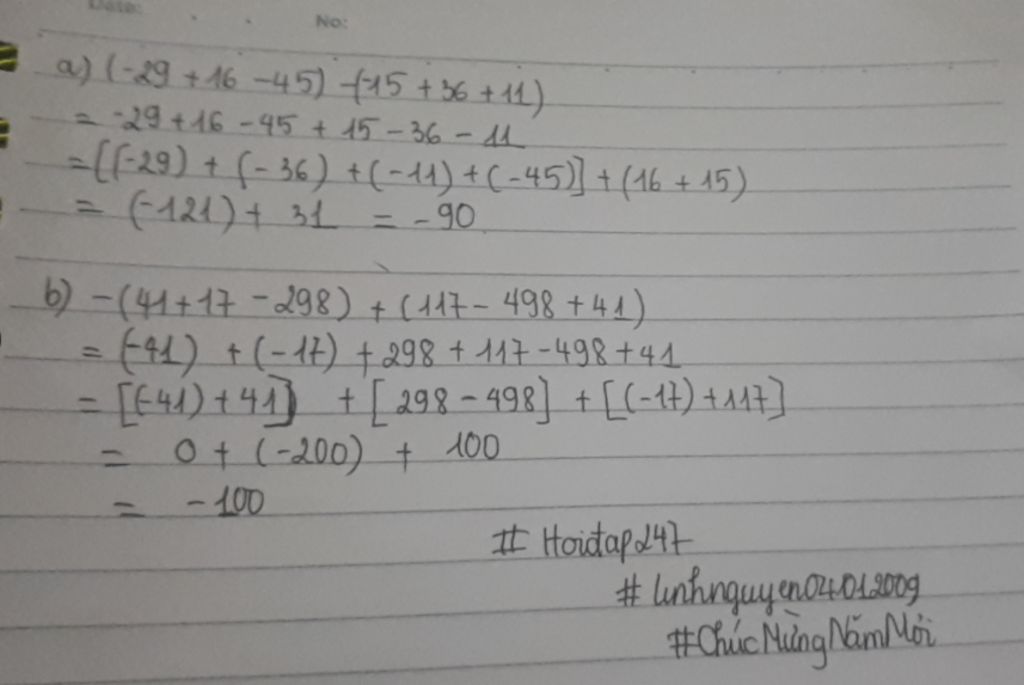 Date: No:
a) (-29 + 16 - 45) - (-15 + 36 + 11)
= -29 + 16 - 45 + 15 - 36 - 11
= [(-29) + (-36) + (-11) + (-45)] + (16 + 15)
= (-121) + 31 = -90
b) -(41 + 17 - 298) + (117 - 498 + 41)
= (-41) + (-17) + 298 + 117 - 498 + 41
= [(-41) + 41] + [298 - 498] + [(-17) + 117]
= 0 + (-200) + 100
= -100
# Hoidap247
# linhnguyen04012009
#ChúcMừngNămMới